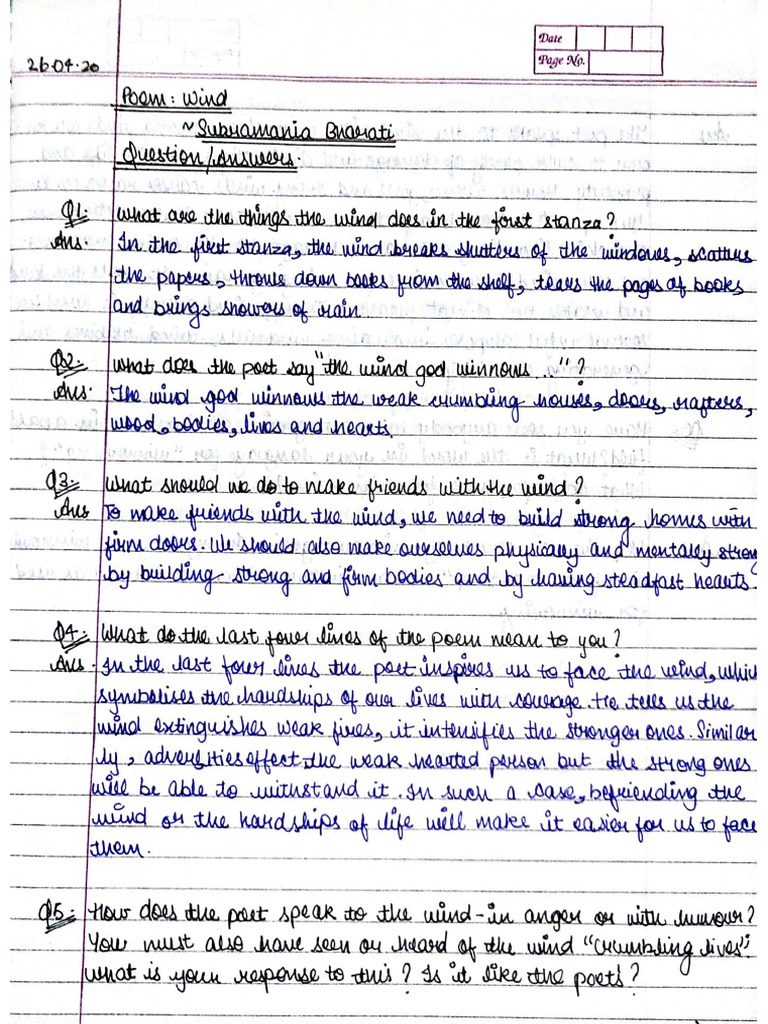 Date
Page No.
26-04-20
Poem: Wind
~Subramania Bharati
Question/Answers.
Q1. What are the things the wind does in the first stanza?
Ans. In the first stanza, the wind breaks shutters of the windows, scatters
the papers, throws down books from the shelf, tears the pages of books
and brings showers of rain.
Q2. What does the poet say "the wind god winnows..."?
Ans. The wind god winnows the weak crumbling houses, doors, rafters,
wood, bodies, lives and hearts.
Q3. What should we do to make friends with the wind?
Ans To make friends with the wind, we need to build strong homes with
firm doors. We should also make ourselves physically and mentally strong
by building strong and firm bodies and by having steadfast hearts.
Q4. What do the last four lines of the poem mean to you?
Ans. In the last four lines the poet inspires us to face the wind, which
symbolises the hardships of our lives with courage. He tells us the
wind extinguishes weak fires, it intensifies the stronger ones. Similar
ly, adversities effect the weak hearted person but the strong ones
will be able to withstand it. In such a case, befriending the
wind or the hardships of life will make it easier for us to face
them.
Q5. How does the poet speak to the wind-in anger or with humour?
You must also have seen or heard of the wind "crumbling lives".
What is your response to this? Is it like the poet's?